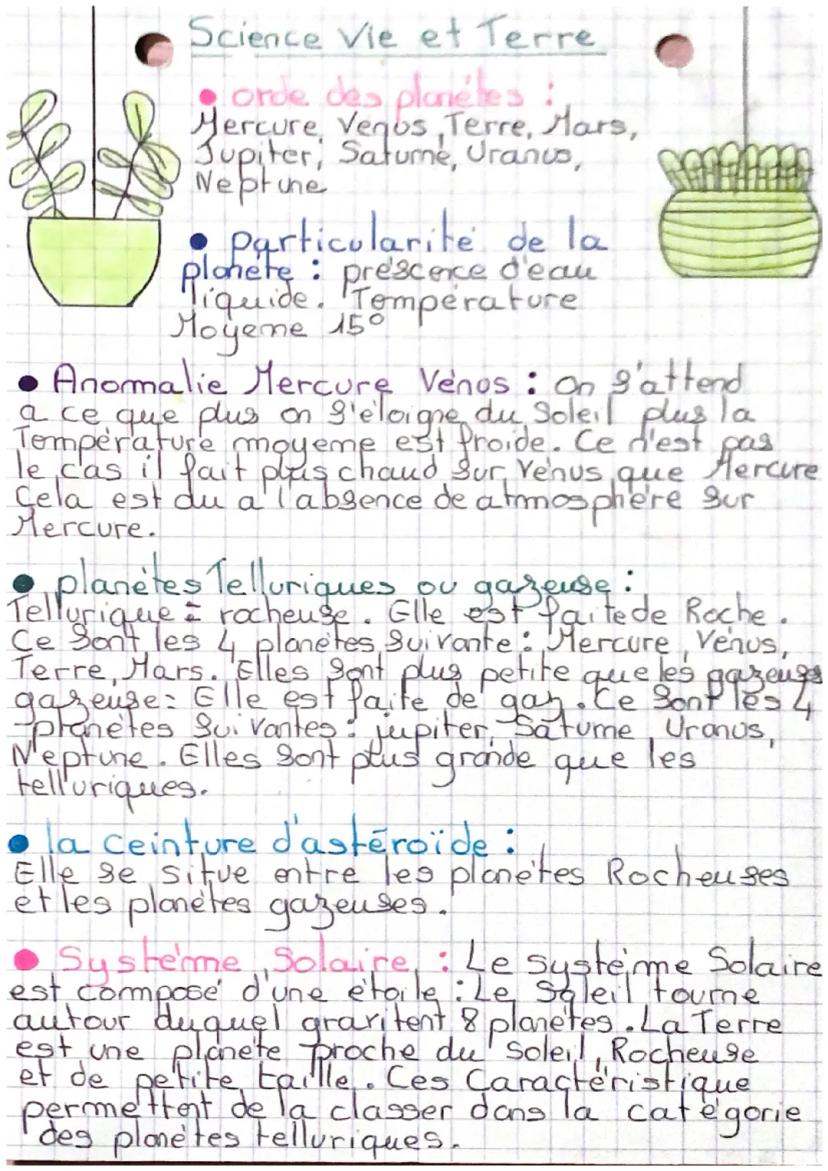 Science Vie et Terre
• orde des planétes :
Mercure, Venus, Terre, Mars,
Jupiter, Saturne, Uranus,
Neptune
• particularité de la
planéte : préscence d'eau
liquide. Température
Moyenne 15°
• Anomalie Mercure Vénus : on s'attend
a ce que plus on s'éloigne du Soleil plus la
Température moyenne est froide. Ce n'est pas
le cas il fait plus chaud sur Vénus que Mercure
Cela est du a l'absence de atmosphère sur
Mercure.
• planètes Telluriques ou gazeuse :
Tellurique = rocheuse. Elle est faite de Roche.
Ce sont les 4 planètes suivante : Mercure, Vénus,
Terre, Mars. Elles sont plus petite que les gazeuses
gazeuse = Elle est faite de gaz. Ce sont les 4
planètes suivantes : jupiter, Saturne Uranus,
Neptune. Elles sont plus grande que les
telluriques.
• la ceinture d'astéroïde :
Elle se situe entre les planètes Rocheuses
et les planètes gazeuses.
• Système Solaire : Le système Solaire
est composé d'une étoile : Le Soleil tourne
autour duquel gravitent 8 planètes. La Terre
est une planète proche du Soleil, Rocheuse
et de petite taille. Ces Caractéristique
permettent de la classer dans la catégorie
des planètes telluriques.